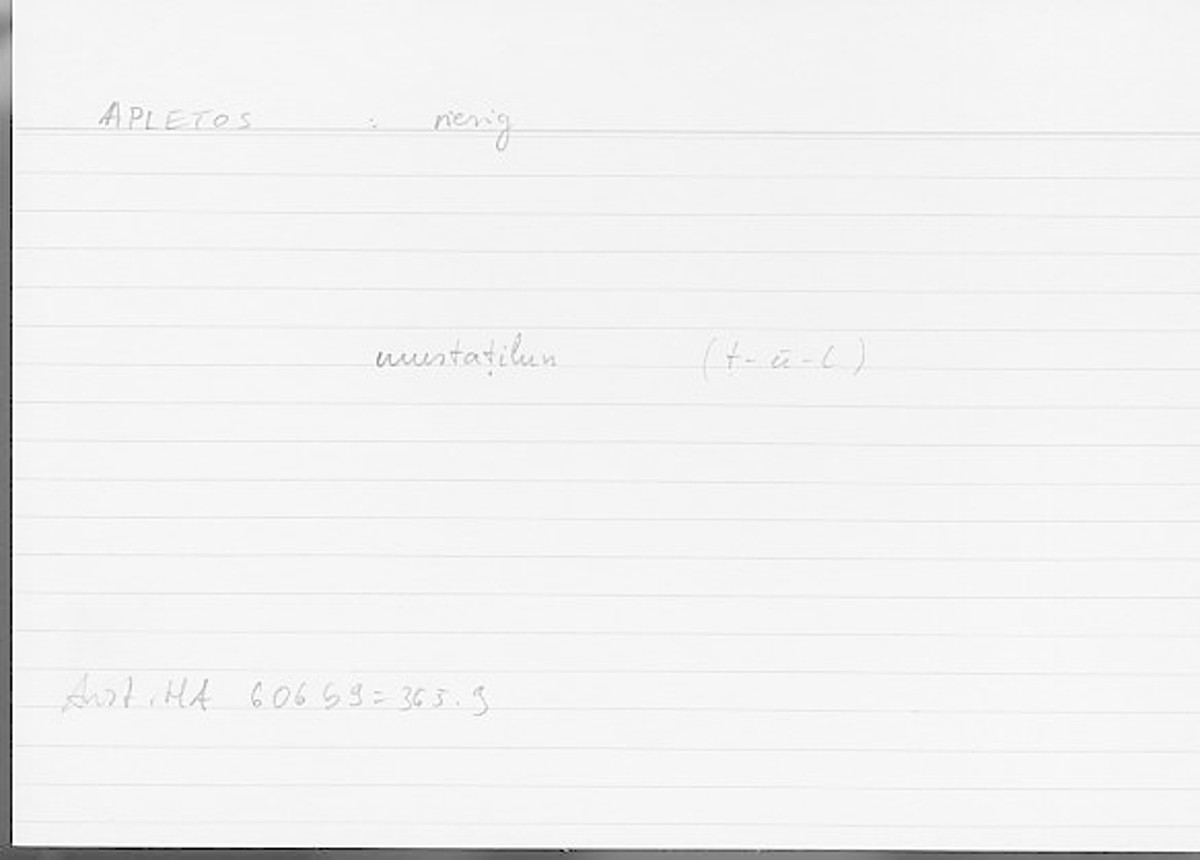 APLETOS : riesig
mustaṭilun (ṭ-ū-l)
Arist. HA 606b9=363.9